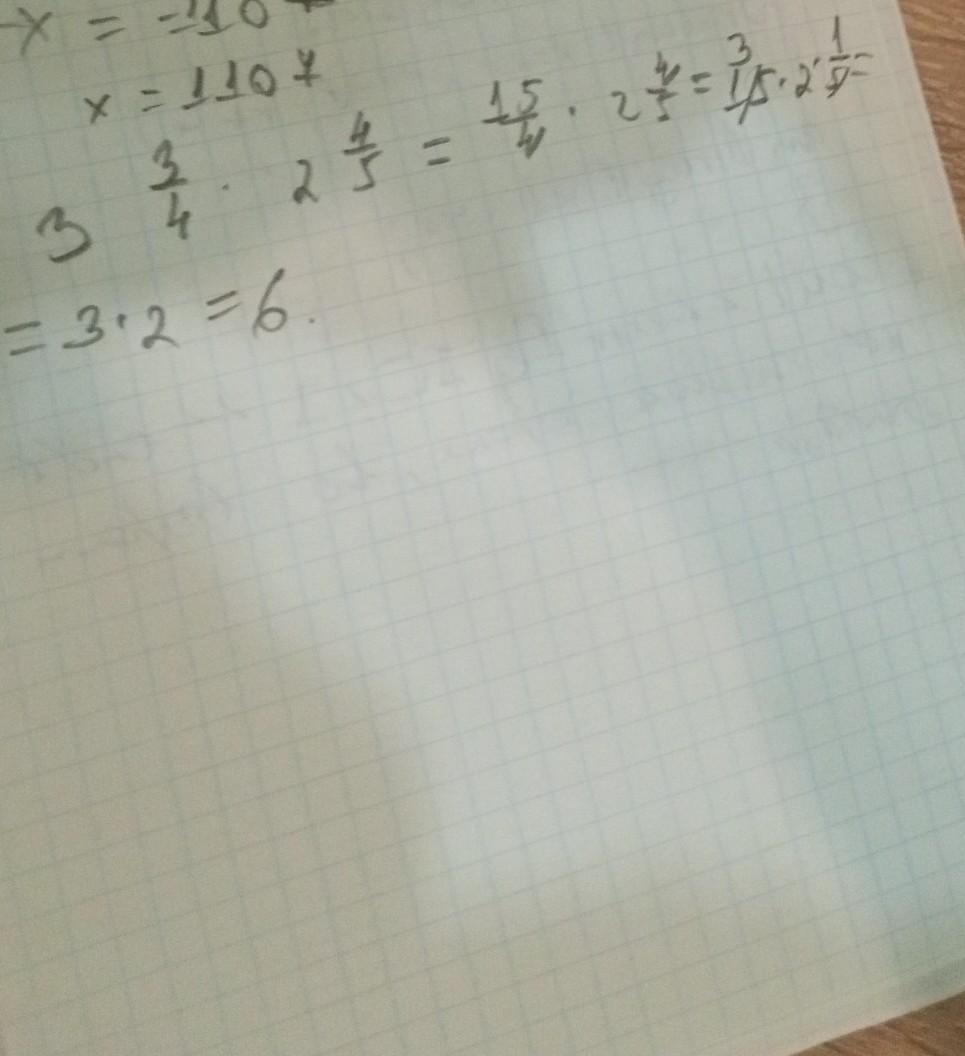 -x = -110
x = 1107
3 3/4 · 2 4/5 = 15/4 · 2 4/5 = 3 15 · 2 · 1/5 =
= 3 · 2 = 6.